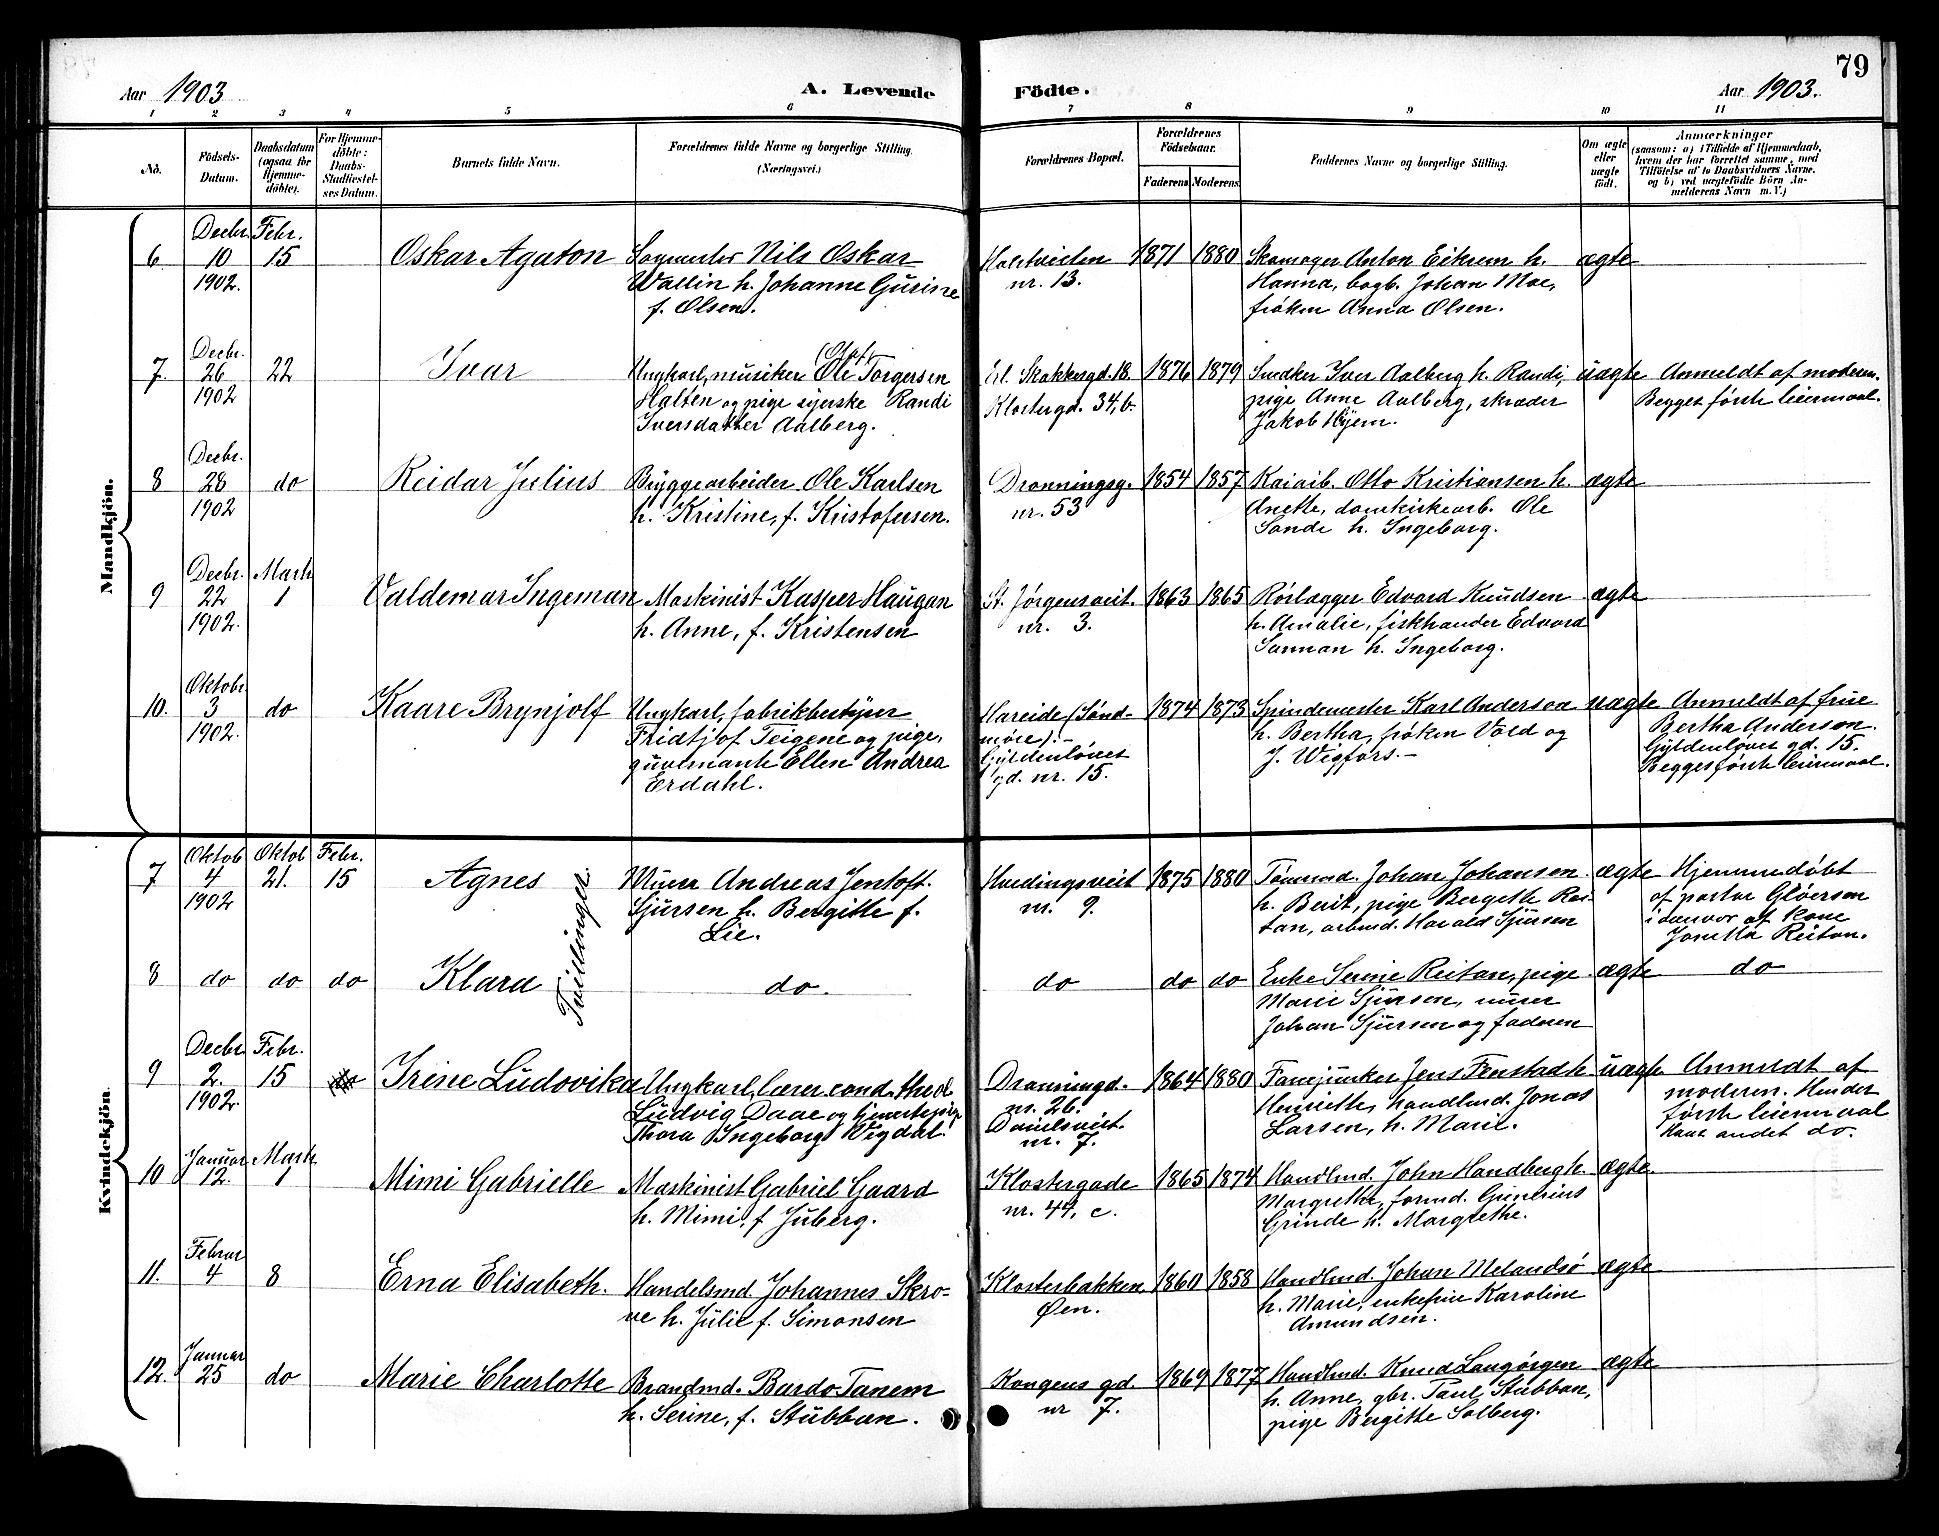 79
Aar 1903
A. Levende
Födte.
Aar 1903.
1 2 3 4 5 6 7 8 9 10 11
No.
Födsels-
Datum.
Daabsdatum
(ogsaa for
Hjemme-
döbte).
For Hjemme-
döbte:
Daabs-
Stadfæstel-
ses Datum.
Barnets fulde Navn.
Forældrenes fulde Navne og borgerlige Stilling.
(Næringsvei.)
Forældrenes Bopæl.
Forældrenes
Födselsaar.
Faderens
Moderens
Faddernes Navne og borgerlige Stilling.
Om ægte
eller
uægte
födt.
Anmærkninger
(saasom: a) i Tilfælde af Hjemmedaab,
hvem der har forrettet samme, med
Tilföielse af to Daabsvidners Navne.
og b) ved uægtefödte Börn An-
melderens Navn m. V.)
Mandkjön.
6
Decbr.
10
1902.
Febr.
15
Oskar Agaton
Sagmester Nils Oskar
Wallin h. Johanne Gusine
f. Olsen.
nr. 13.
1871
1880
Skomager Anton Eikrem h.
Hanna, bogb. Johan Moe,
frøken Anna Olsen.
ægte
7.
Decbr.
26
1902
22
Ivar
(Olaf)
Ungkarl, musiker Ole Torgersen
Halten og pige syerske Randi
Iversdatter Aalberg.
Erl. Skakkesgd. 18.
Klostergd. 34, b.
1876
1879
Snedker Iver Aalberg h. Randi,
pige Anne Aalberg, skræder
Jakob Hjem.
uægte
Anmeldt af moderen.
Begges første leiermaal.
8
Decbr.
28
1902
do
Reidar Julius
Bryggearbeider Ole Karlsen
h. Kristine, f. Kristofersen.
Dronningsg.
nr. 53
1854
1857
Kaiarb. Otto Kristiansen h.
Anette, domkirkearb. Ole
Sande h. Ingeborg.
ægte
9
Decbr.
22
1902.
Marts
1
Valdemar Ingeman
Maskinist Kasper Haugan
h. Anne, f. Kristensen
St. Jørgensveit.
nr. 3.
1863
1865
Rørlægger Edvard Knudsen
h. Amalie, fiskhander Edvard
Sannan h. Ingeborg.
ægte
10.
Oktobr.
3
1902.
do
Kaare Brynjolf
Ungkarl, fabrikbestyrer
Fridtjof Teigene og pige,
guvernante Ellen Andrea
Erdahl.
Hareide (Sønd-
møre).-
Gyldenløves
gd. nr. 15.
1874
1873
Spindemester Karl Anderson
h. Bertha, frøken Vold og
J. Wigfors.-
uægte
Anmeldt af frue
Bertha Anderson.
Gyldenløves gd. 15.
Begges første leiermaal.
Kvindekjön.
7
Oktob
4
1902
Oktob
21.
Febr.
15
Agnes
Tvillinger.
Murer Andreas Jentoft.
Sjursen h. Bergitte f.
Lie.
Hvedingsveit
nr. 9.
1875
1880
Tømmd. Johan Johansen
h. Berit, pige Bergeth Rei-
tan, arbmd. Harald Sjursen
ægte
Hjemmedøbt
af pastor Gløersen
i nærvær af kone
Reitan.
8
do
do
do
Klara
do.
do
do
do
Enke Serine Reitan, pige
Marie Sjursen, murer
Johan Sjursen og faderen
ægte
do
9
Decbr.
2.
1902.
Febr.
15
Irene Ludovika
Ungkarl, lærer cand. theol
Ludvig Daae og tjenestepige
Thora Ingeborg Vigdal.
Dronningd.
nr. 26.
Danielsveit.
nr. 7.
1864
1880
Fanejunker Jens Fenstad h.
Henriette, handlmd. Jonas
Larsen, h. Marie.
uægte
Anmeldt af
moderen. Hendes
første leiermaal
Hans andet do.
10
Januar
12.
Marts
1
Mimi Gabrielle
Maskinist Gabriel Gaard
h. Mimi, f. Juberg.
Klostergade
nr. 44, c.
1865
1874
Handlmd. John Handberg h.
Margrethe, formd. Grinerius
Grinde h. Margrethe.
ægte
11.
Februar
4
8
Erna Elisabeth.
Handelsmd. Johannes Skro-
ve h. Julie f. Simonsen
Klosterbakken,
Øen.
1860
1858
Handlmd. Johan Melandsø
h. Marie, enkefrue Karoline
Amundsen.
ægte
12.
Januar
25
do
Marie Charlotte
Brandmd. Bardo Tanem
h. Serine, f. Stubban.
Kongens gd.
nr 7.
1869
1877
Handlmd. Knud Langørgen
h. Anne, gbr. Paul Stubban,
pige Bergitte Solberg.
ægte